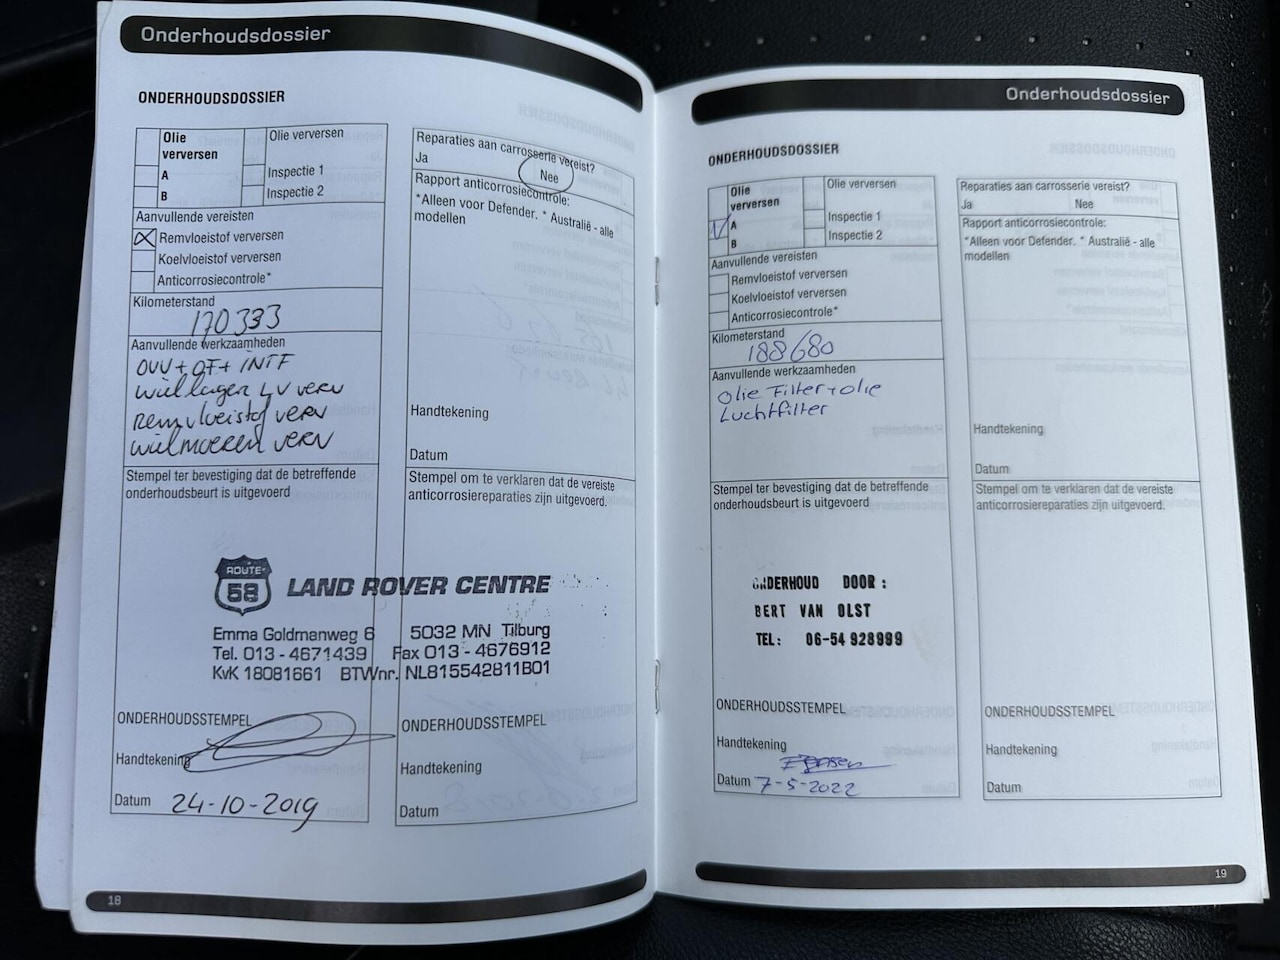 Onderhoudsdossier
ONDERHOUDSDOSSIER
Olie verversen
A
B
Olie verversen
Inspectie 1
Inspectie 2
Aanvullende vereisten
Remvloeistof verversen
Koelvloeistof verversen
Anticorrosiecontrole*
Kilometerstand
170333
Aanvullende werkzaamheden
OVV + OF + INTF
wiellagen LV verv
Remvloeistof verv
wielmoeren verv
Stempel ter bevestiging dat de betreffende
onderhoudsbeurt is uitgevoerd
Reparaties aan carrosserie vereist?
Ja Nee
Rapport anticorrosiecontrole:
*Alleen voor Defender. * Australië - alle
modellen
Handtekening
Datum
Stempel om te verklaren dat de vereiste
anticorrosiereparaties zijn uitgevoerd.
ROUTE 58 LAND ROVER CENTRE
Emma Goldmanweg 6 5032 MN Tilburg
Tel. 013 - 4671439 Fax 013 - 4676912
KvK 18081661 BTWnr. NL815542811B01
ONDERHOUDSSTEMPEL
Handtekening
Datum 24-10-2019
ONDERHOUDSSTEMPEL
Handtekening
Datum
18
Onderhoudsdossier
ONDERHOUDSDOSSIER
Olie
verversen
A
B
Olie verversen
Inspectie 1
Inspectie 2
Aanvullende vereisten
Remvloeistof verversen
Koelvloeistof verversen
Anticorrosiecontrole*
Kilometerstand
188680
Aanvullende werkzaamheden
Olie Filter + olie
Luchtfilter
Stempel ter bevestiging dat de betreffende
onderhoudsbeurt is uitgevoerd
ONDERHOUD DOOR :
BERT VAN OLST
TEL: 06-54 928999
ONDERHOUDSSTEMPEL
Handtekening
Datum 7-5-2022
Reparaties aan carrosserie vereist?
Ja Nee
Rapport anticorrosiecontrole:
*Alleen voor Defender. * Australië - alle
modellen
Handtekening
Datum
Stempel om te verklaren dat de vereiste
anticorrosiereparaties zijn uitgevoerd.
ONDERHOUDSSTEMPEL
Handtekening
Datum
19